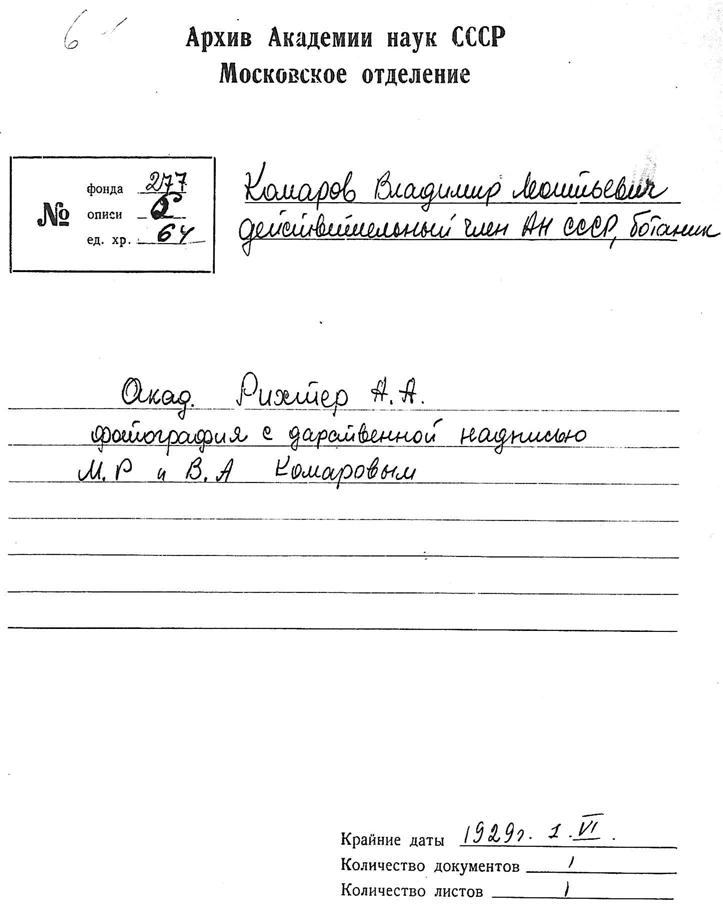 6
Архив Академии наук СССР
Московское отделение
№
фонда 277
описи 2
ед. хр. 64
Комаров Владимир Леонтьевич
действительный член АН СССР, ботаник
Акад. Рихтер А.А.
фотография с дарственной надписью
М.Р и В.А Комаровым
Крайние даты 1929г. 1.VI.
Количество документов 1
Количество листов 1